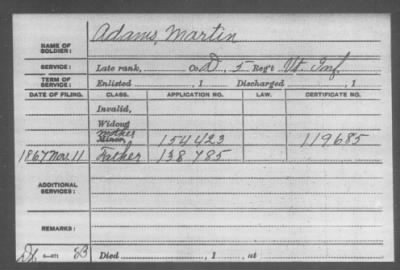 Adams, Martin
NAME OF SOLDIER:
SERVICE: Late rank, Co. D, 5 Reg't Vt. Inf.
TERM OF SERVICE: Enlisted , 1 Discharged , 1
DATE OF FILING. CLASS. APPLICATION NO. LAW. CERTIFICATE NO.
Invalid,
Widow,
mother Minor, 154423 119685
1867 Nov. 11 Father 158785
ADDITIONAL SERVICES:
REMARKS:
Died , 1 , at